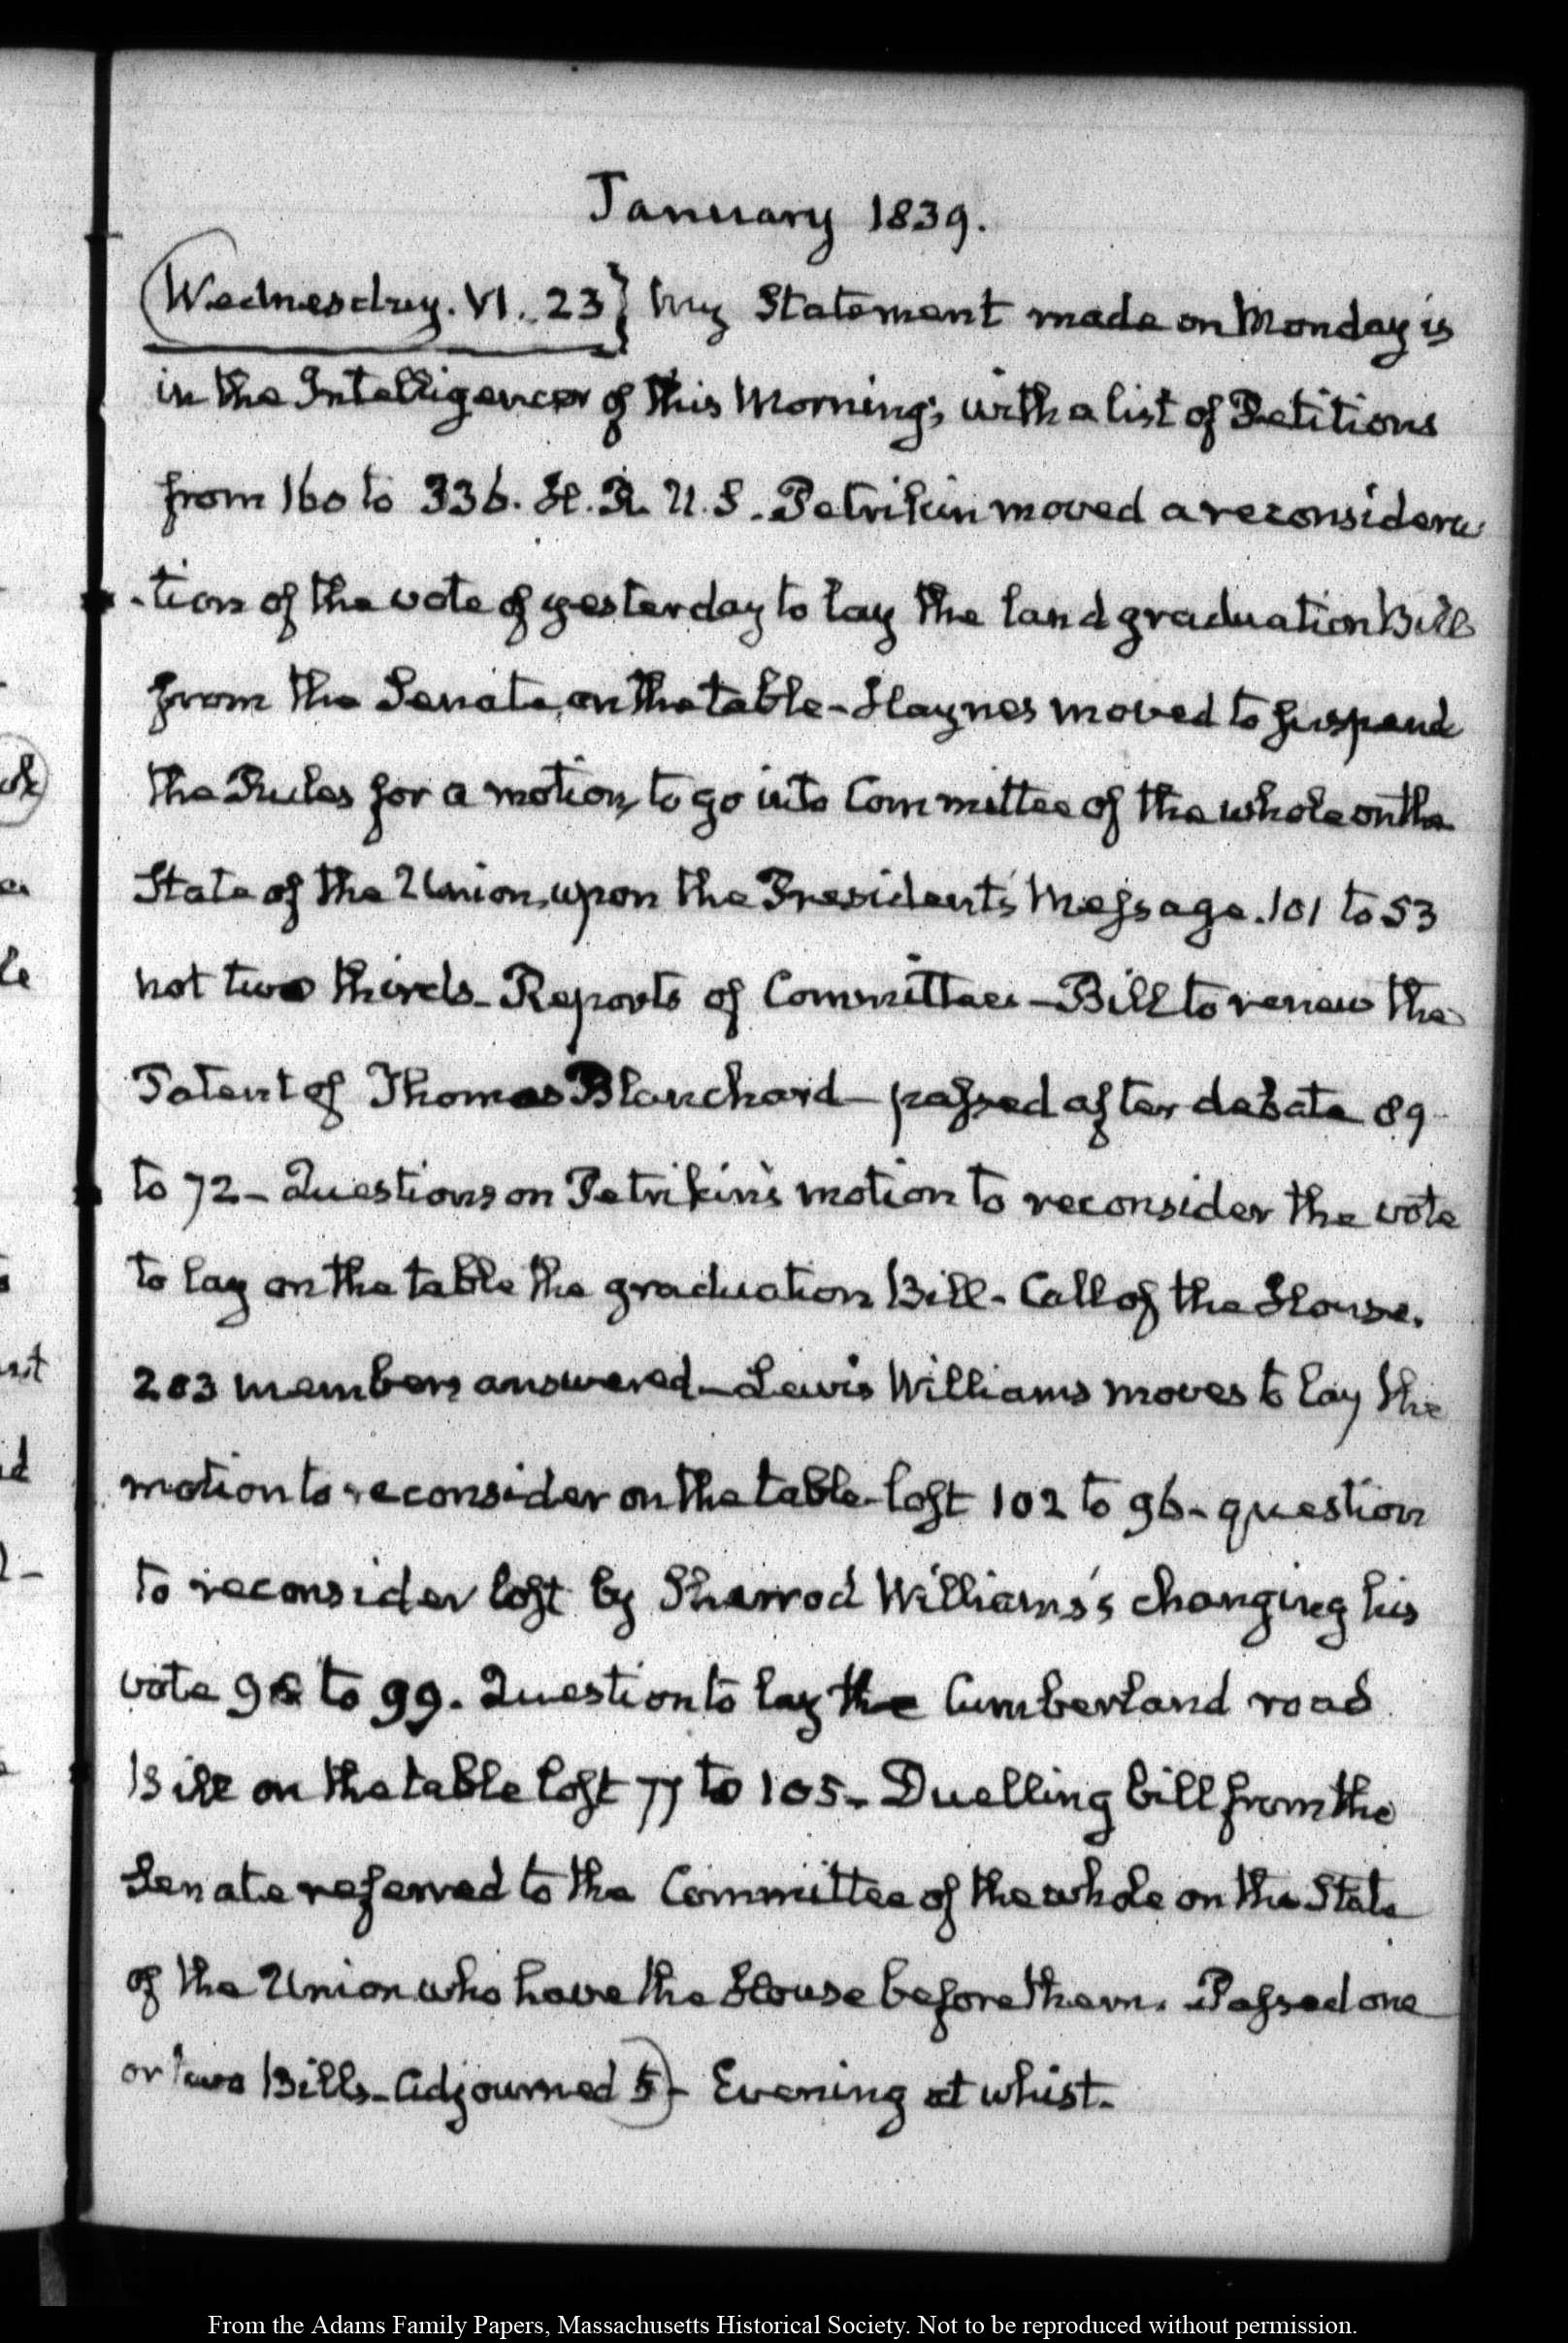 January 1839.
Wednesday. VI. 23} My Statement made on Monday is
in the Intelligencer of this Morning; with a list of Petitions
from 160 to 336. H. R. U. S. Petrikin moved a reconsidera
-tion of the vote of yesterday to lay the land graduation Bill
from the Senate, on the table - Haynes moved to suspend
the Rules for a motion, to go into Committee of the whole on the
State of the Union, upon the President's Message. 101 to 53
not two thirds - Reports of Committees - Bill to renew the
Patent of Thomas Blanchard - passed after debate 89
to 72 - Questions on Petrikin's motion to reconsider the vote
to lay on the table the graduation Bill - Call of the House.
203 members answered - Lewis Williams moves to lay the
motion to reconsider on the table - lost 102 to 96 - question
to reconsider lost by Sherrod Williams's changing his
vote to 99. Question to lay the Cumberland road
Bill on the table lost 77 to 105 - Duelling bill from the
Senate referred to the Committee of the whole on the State
of the Union who have the House before them. Passed one
or two Bills - Adjourned 5) - Evening at whist.
From the Adams Family Papers, Massachusetts Historical Society. Not to be reproduced without permission.